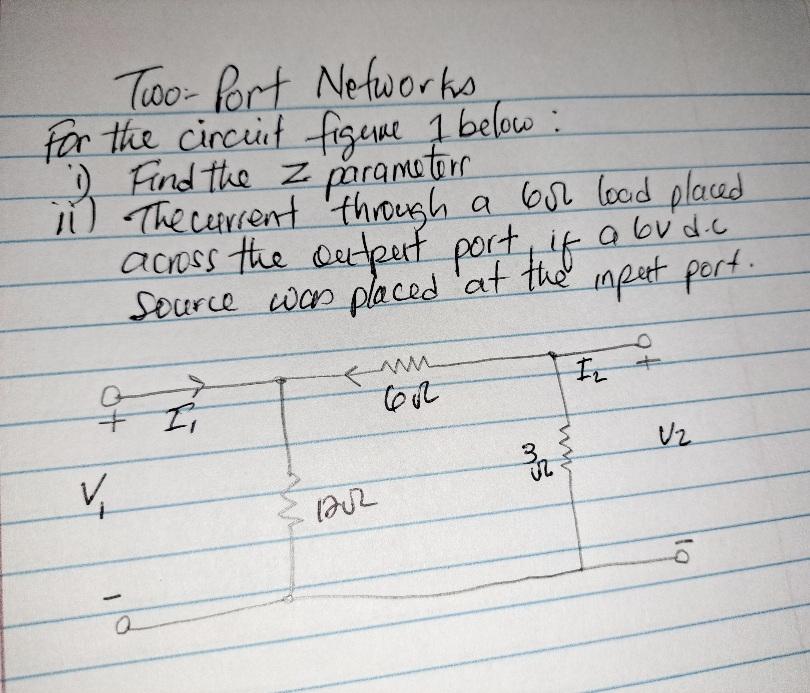 Two-Port Networks
For the circuit figure 1 below:
i) Find the Z parameters
ii) The current through a 6Ω load placed
across the output port, if a 6v d.c
source was placed at the input port.
I1
6Ω
I2
+
+
V1
12Ω
3Ω
V2
-
-